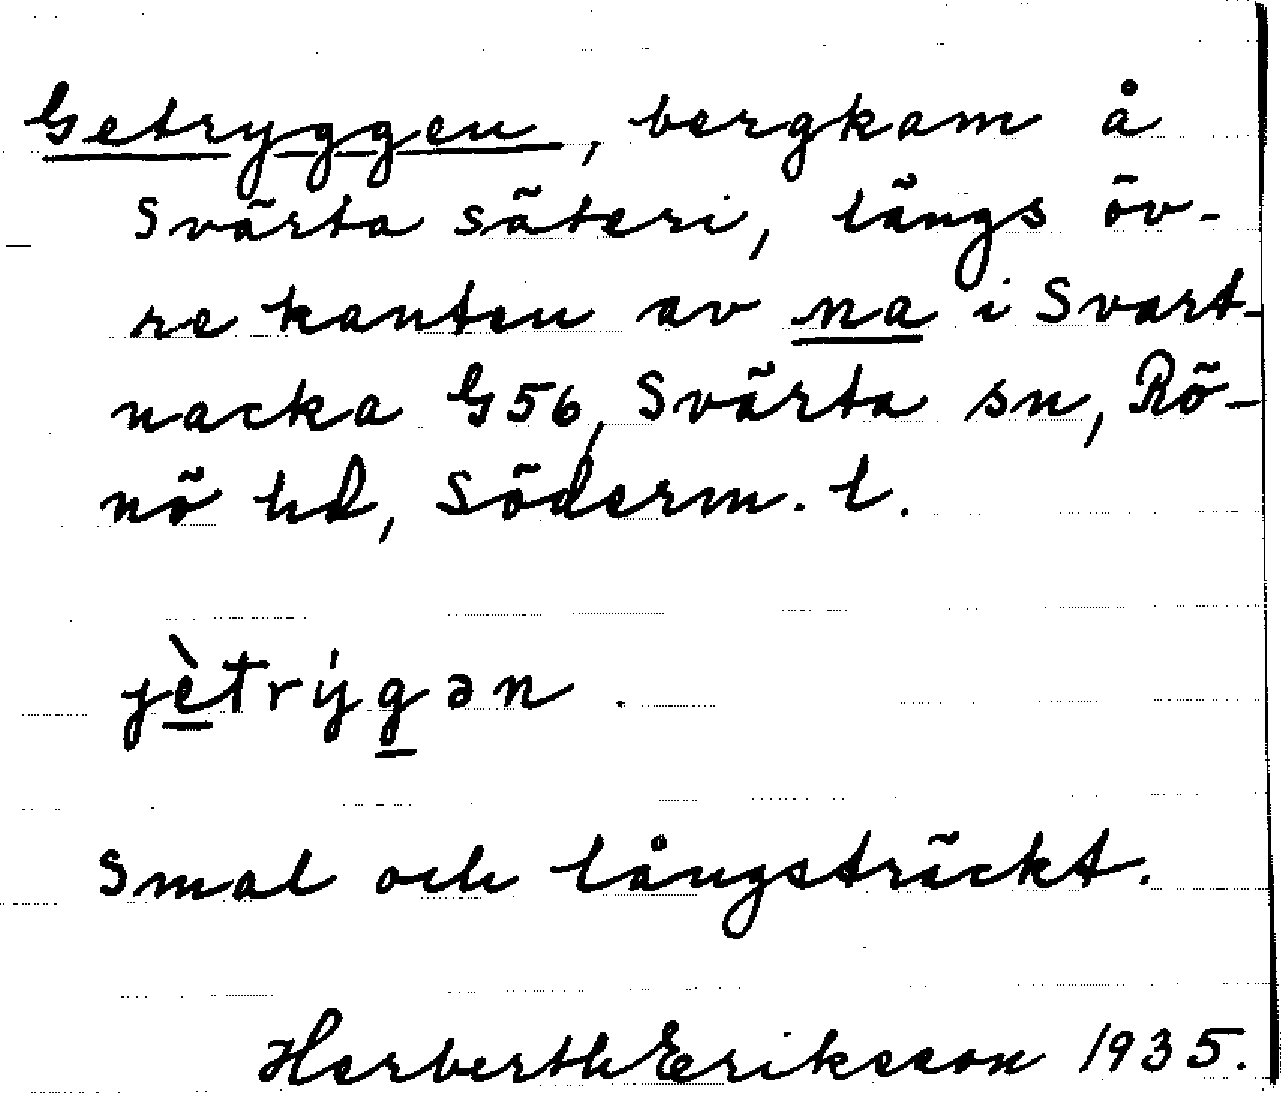 Getryggen, bergkam å
Svärta säteri, längs öv-
re kanten av na i Svart-
nacka G56, Svärta sn, Rö-
nö hd, Söderm. l.
jètrýgən.
Smal och långsträckt.
Herberth Eriksson 1935.